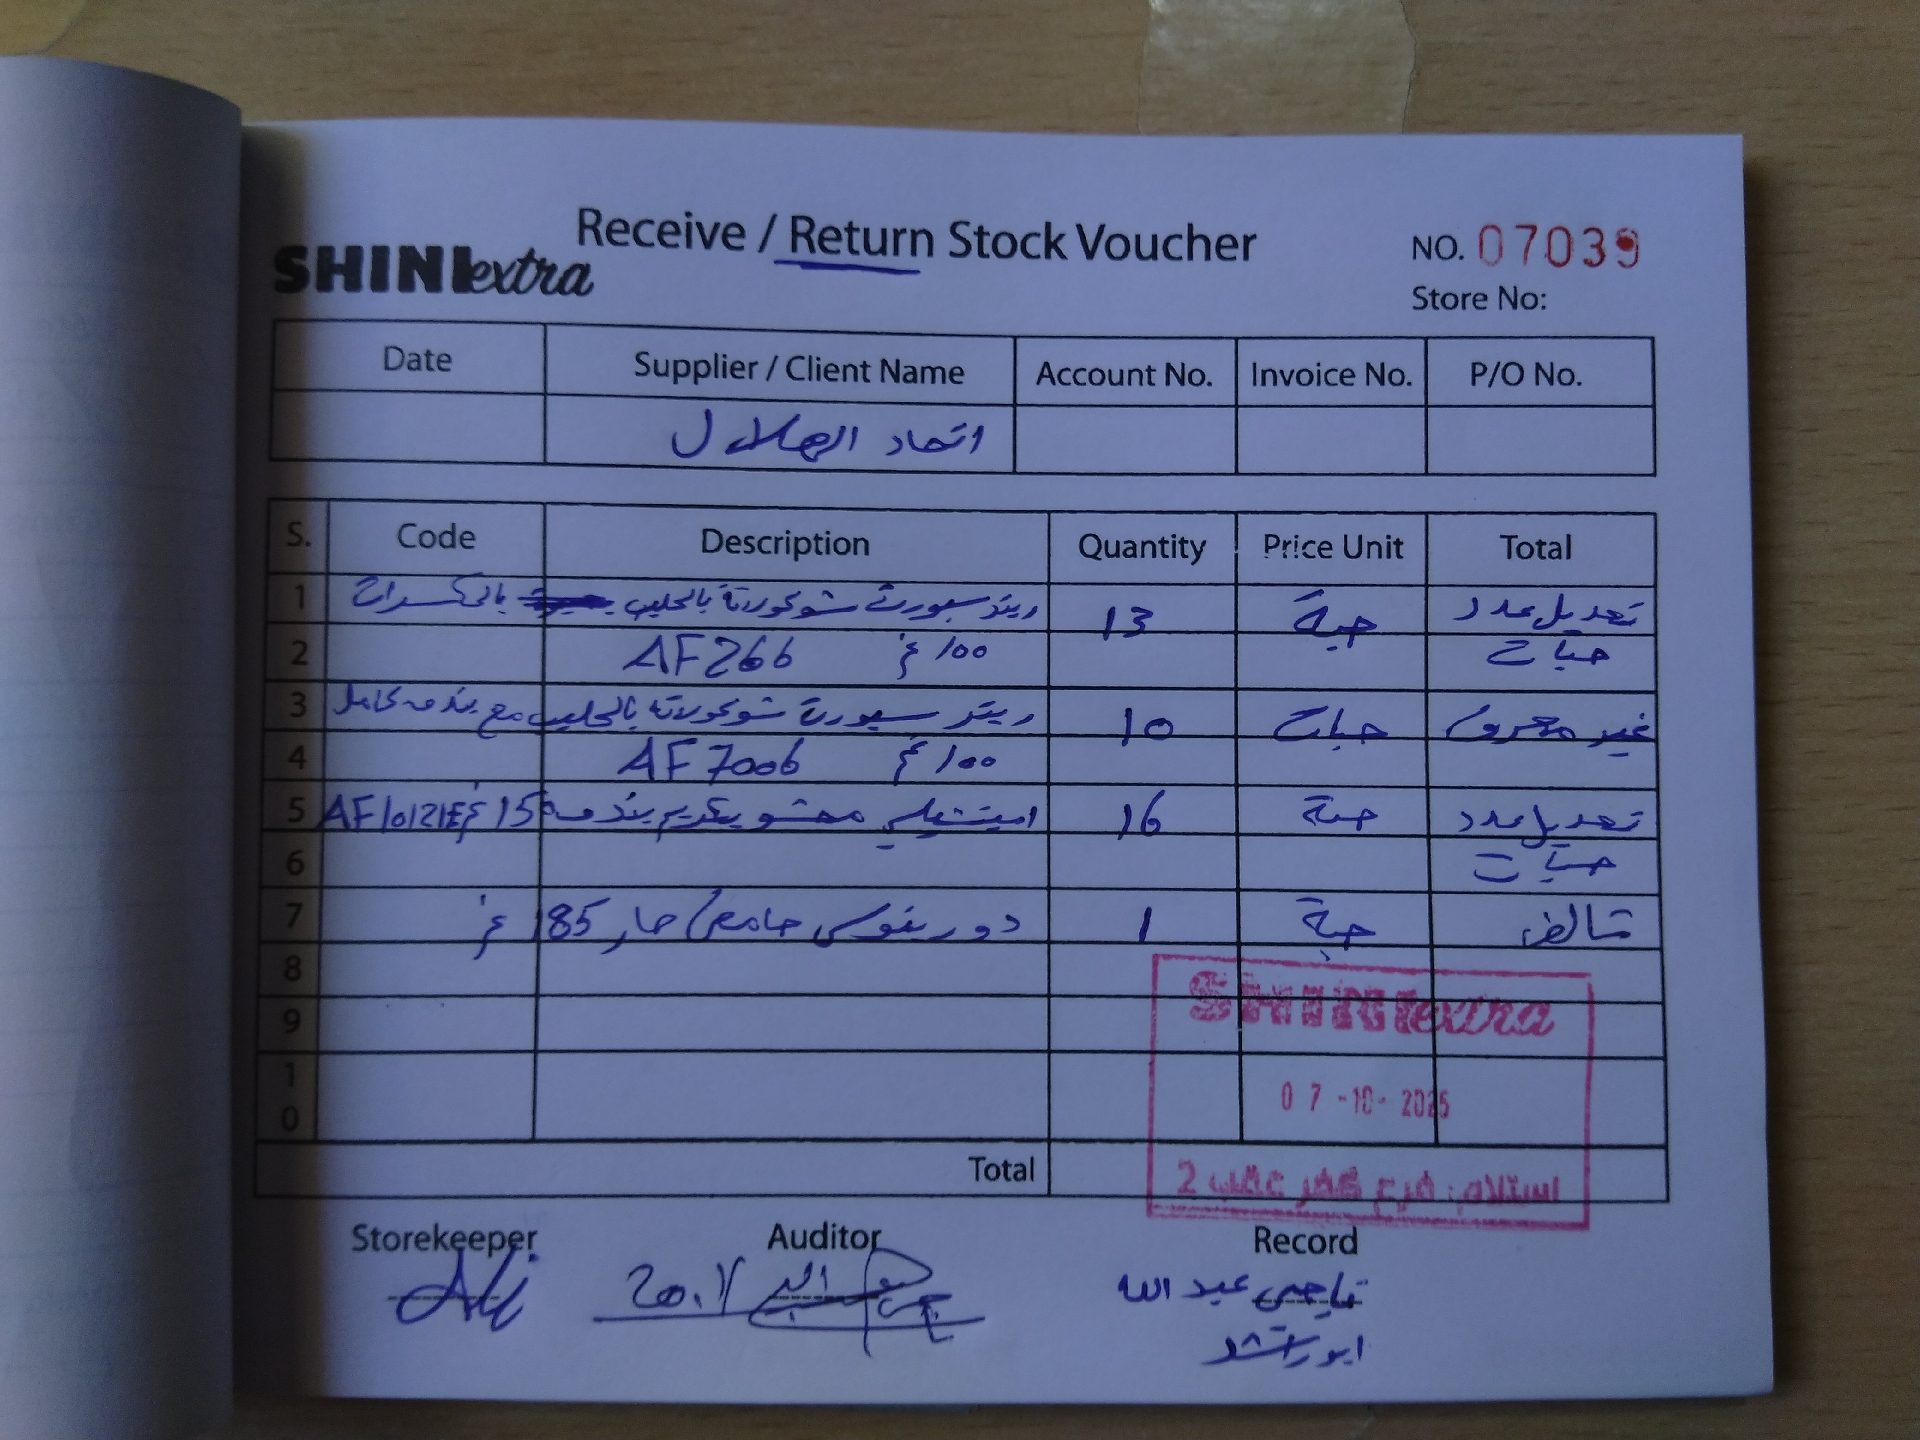 Receive / Return Stock Voucher
SHINIextra
NO. 07039
Store No:
Date Supplier / Client Name Account No. Invoice No. P/O No.
اتحاد الهلال
S. Code Description Quantity Price Unit Total
1 ريتر سبورت شوكولاتة بالحليب بالكسرات 13 حبة تعديل عدد
2 AF266 100 غ حبات
3 ريتر سبورت شوكولاتة بالحليب مع بندق كامل 10 حبات غير معروف
4 AF7006 100 غ
5 محشو بكريم بندق 15 غ AF10121E 16 حبة تعديل عدد
6 حبات
7 دوريتوس حامض حار 185 غ 1 حبة تالف
8
9
10
SHINIextra
07-10-2025
Total
استلام: فرع كفر عقب 2
Storekeeper Auditor Record
Ali
ناجي عبد الله
ابو راشد